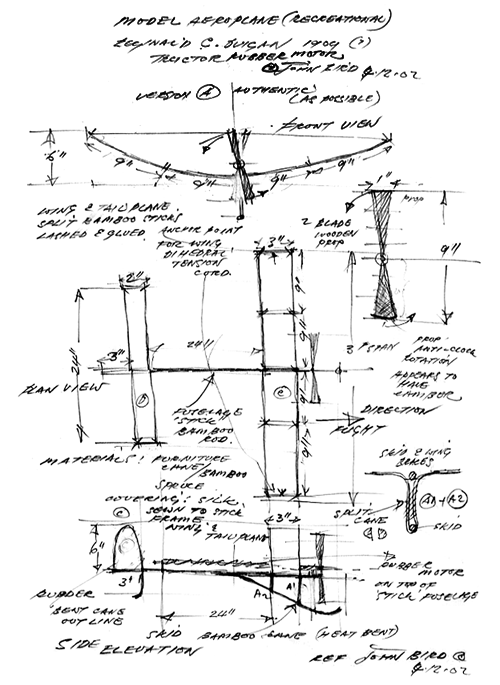 MODEL AEROPLANE (RECREATIONAL)
REGINALD C. DUIGAN 1909 (?)
TRACTOR RUBBER MOTOR
© JOHN BIRD 9.12.02
VERSION (A) AUTHENTIC
(AS POSSIBLE)
FRONT VIEW
6"
9" 9" 9" 9"
WING & TAILPLANE
SPLIT BAMBOO STICKS
LASHED & GLUED
ANCHOR POINT
FOR WING
DIHEDRAL
TENSION
CORD.
2 BLADE
WOODEN
PROP
1"
PROP
9"
2"
3"
24"
24"
3"
9"
9"
9"
9"
3' SPAN
PROP.
ANTI-CLOCK
ROTATION
APPEARS TO
HALE
CAMBER
PLAN VIEW
FUSELAGE
"STICK"
BAMBOO
ROD.
DIRECTION
FLIGHT
MATERIALS: FURNITURE
CANE/
BAMBOO
SPRUCE
COVERING: SILK,
SEWN TO STICK
FRAME
WING &
TAILPLANE
SKID & WING
BRACES
A1 + A2
SKID
SPLIT
CANE
6"
3"
3"
A2 A1
RUBBER
MOTOR
ON TOP OF
'STICK' FUSELAGE
RUDDER
BENT CANE
OUTLINE
24"
SKID BAMBOO CANE (HEAT BENT)
SIDE
ELEVATION
REF JOHN BIRD ©
9.12.02